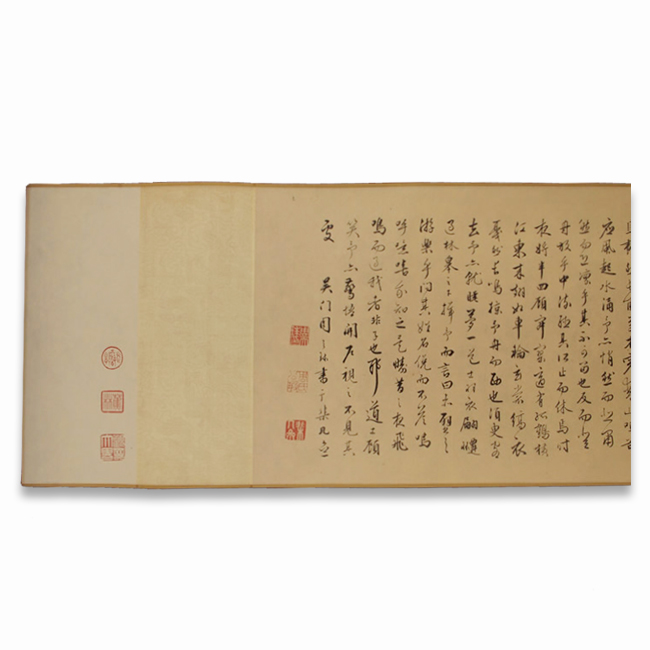 應風起水涌予亦悄然而悲肅
然而恐凜乎其不可留也反而登
舟放乎中流聽其所止而休焉時
夜將半四顧寂寥適有孤鶴橫
江東來翅如車輪玄裳縞衣
戛然長鳴掠予舟而西也須臾客
去予亦就睡夢一道士羽衣翩躚
過林皋之下揖予而言曰赤壁之
遊樂乎問其姓名俛而不答嗚
呼噫嘻我知之矣疇昔之夜飛
鳴而過我者非子也耶道士顧
笑予亦驚悟開戶視之不見其
處
吳門周之書于